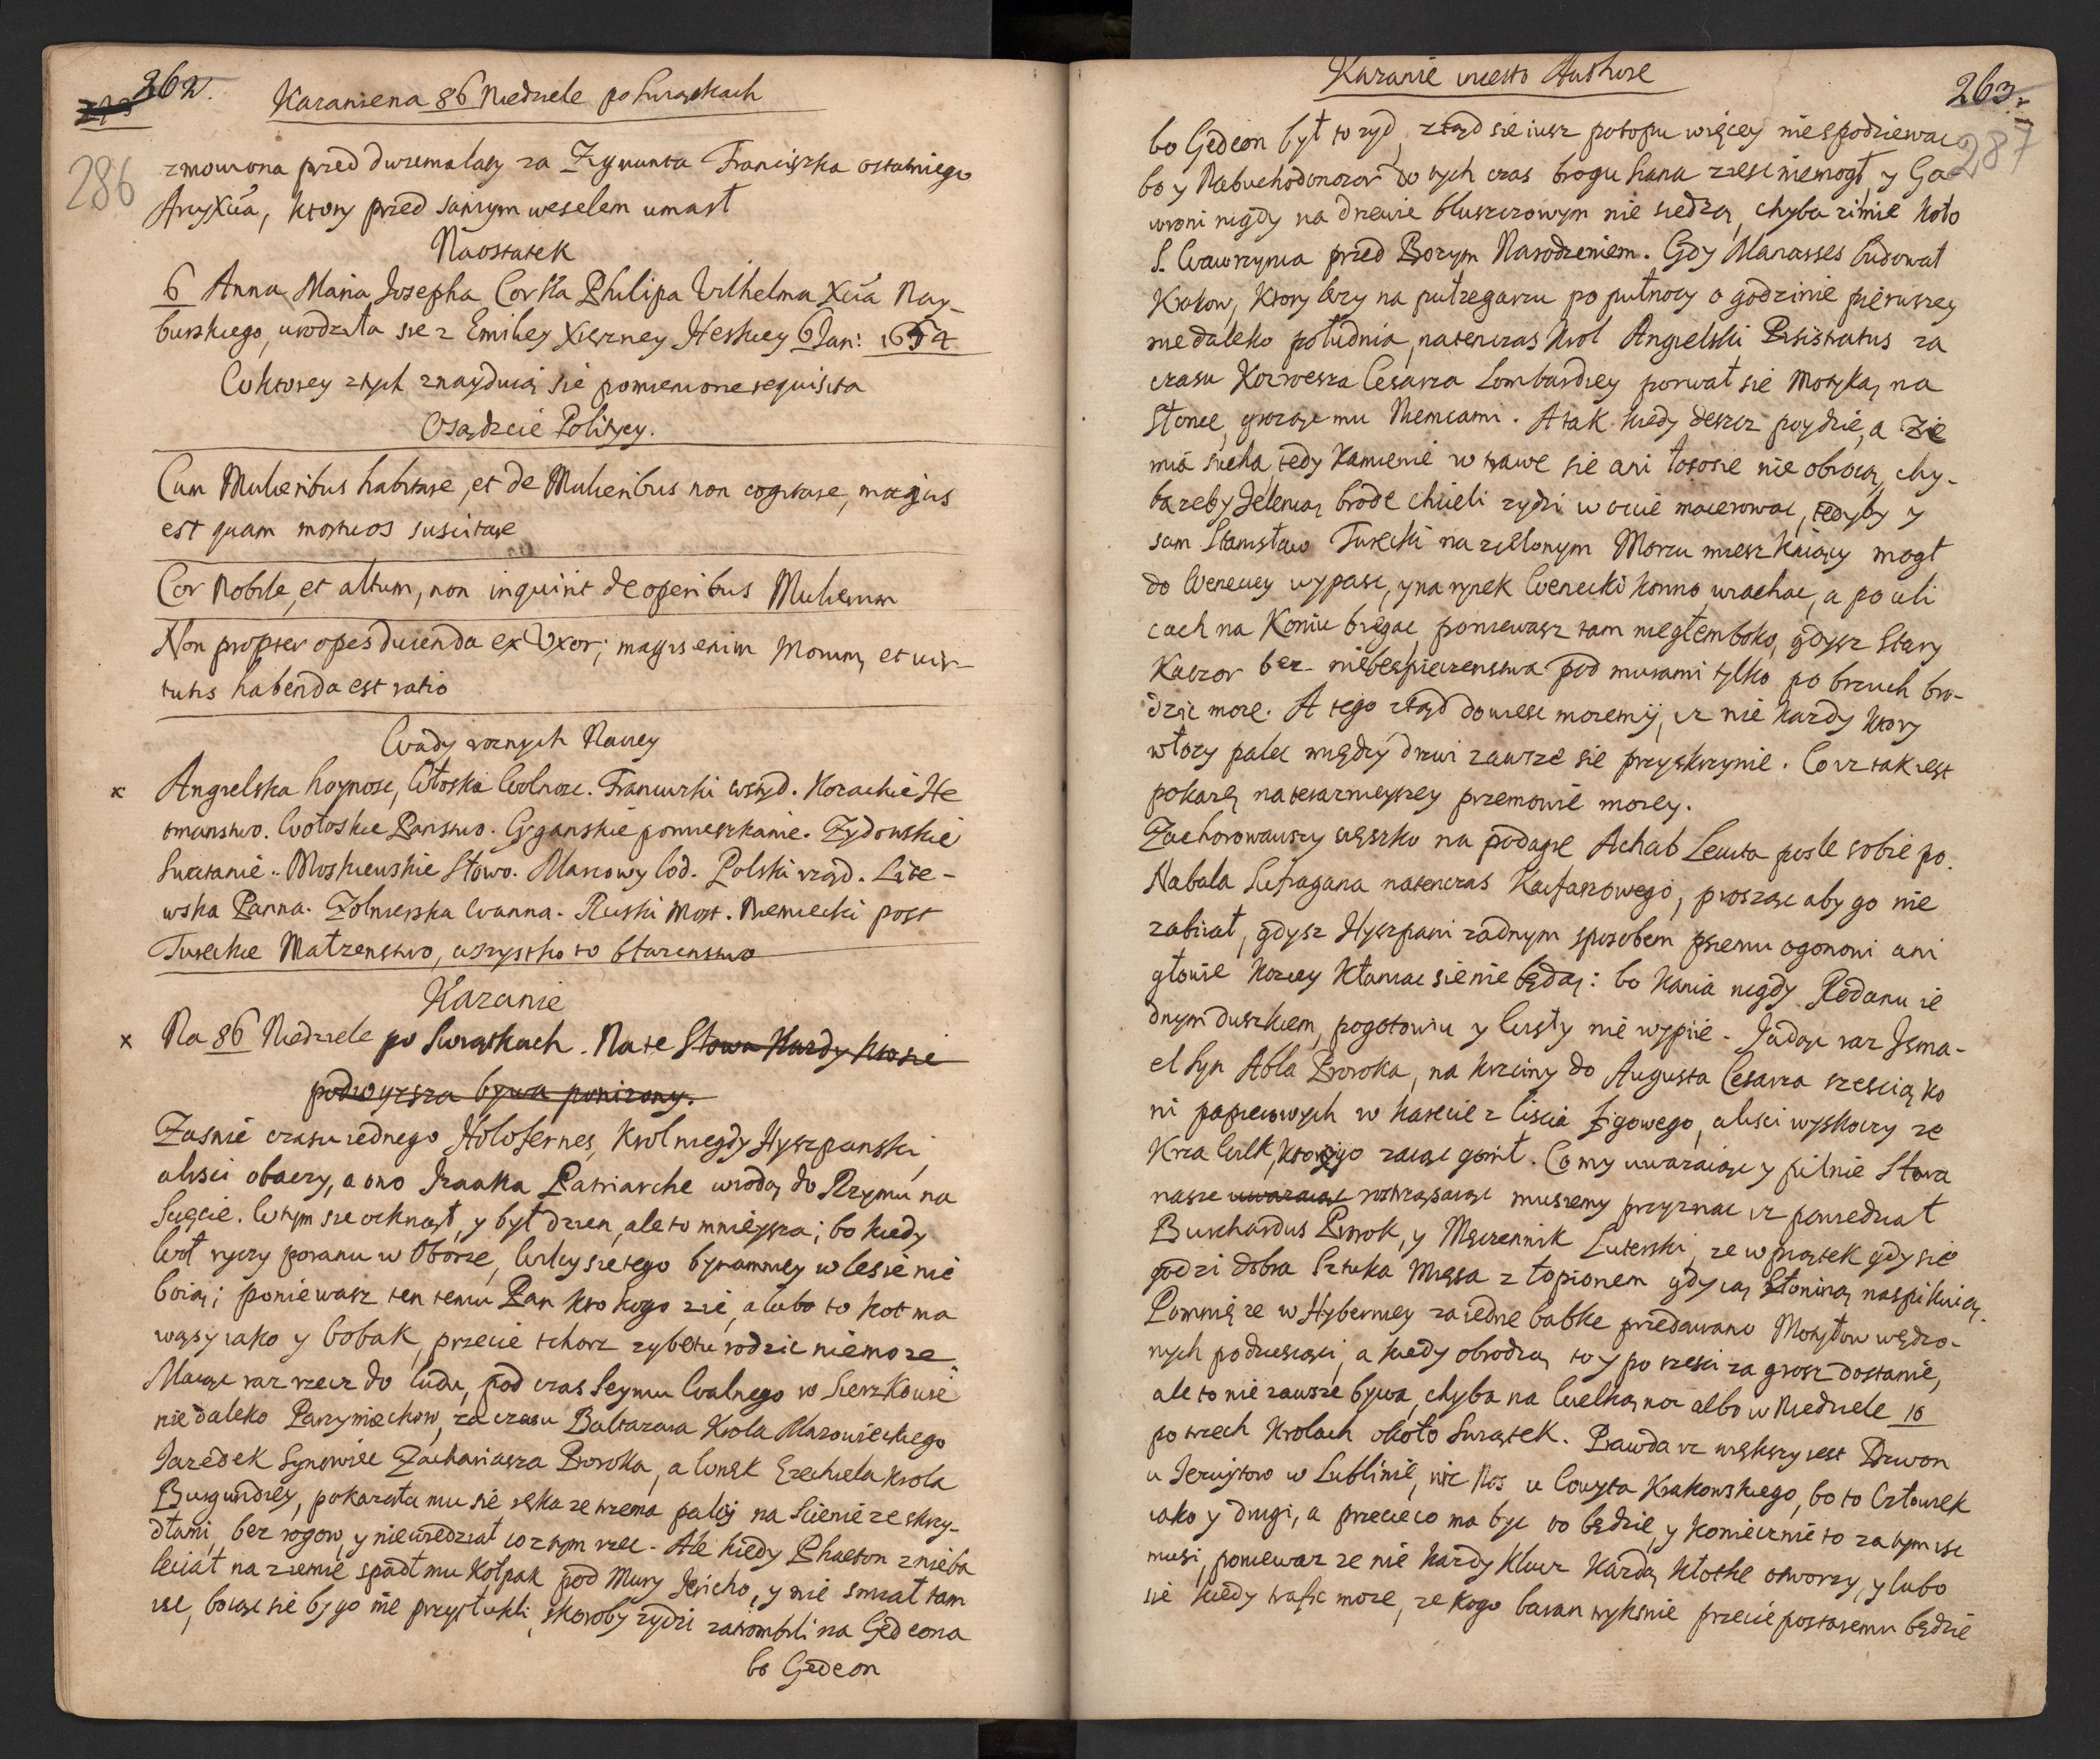 262.
Kazanie na 86 Niedziele po Swiątkach
286
zmowiona przed dwiema laty za Zygmunta Franciszka ostatniego
Arcyxcia, ktory przed samym weselem umarł
Naostatek
6 Anna Maria Josepha Corka Philipa Wilhelma Xcia Nay-
burskiego, urodziła sie z Emiliey Xiężney Heskiey 6 Jan: 1654
W ktorey z tych znayduią sie pomienione requisita
Osądzcie Politycy.
Cum Mulieribus habitare, et de Mulieribus non cogitare, magis
est quam mortuos suscitare
Cor Nobile, et altum, non inquirit de operibus Mulierum
Non propter opes ducenda est Uxor; magis enim Morum, et vir-
tutis habenda est ratio
Wady roznych Nacey
x Angielska hoynosc, Włoska Wolnosc. Francuzki wstyd. Kozackie He
tmanstwo. Wołoskie Panstwo. Cyganskie pomieszkanie. Zydowskie
Swatanie. Moskiewskie Słowo. Marcowy lod. Polski rząd. Lite-
wska Panna. Zołnierska Wanna. Ruski Most. Niemiecki post
Tureckie Małzenstwo, wszystko to błazenstwo
Kazanie
x Na 86 Niedziele po Swiątkach. Na te Słowa Kazdy kto sie
podwyzsza bywa ponizony.
Zasnie czasu iednego Holofernes, Krol niegdy Hyszpanski,
alisci obaczy, a ono Izaaka Patriarche wiodą do Rzymu na
Scięcie. Wtym sie ocknął, y był dzien, ale to mnieysza; bo kiedy
Woł ryczy poranu w Oborze, Wilcy sie tego bynamniey w lesie nie
boią; poniewasz ten temu Pan kto kogo zie, a lubo to kot ma
wąsy iako y bobak, przecie tchorz zybetu rodzic niemoze.
Maiąc raz rzecz do ludu, pod czas Seymu Walnego w Sierzkowie
niedaleko Parzymiechow, za czasu Baltazara Krola Mazowieckiego
Jazedek Synowiec Zachariasza Proroka, a Wnęk Ezechiela Krola
Burgundiey, pokazała mu sie ręka ze trzema palcy na Scienie ze skrzy-
dłami, bez rogow, y niewiedział co z tym rzec. Ale kiedy Phaeton z nieba
leciał na ziemie spadł mu Kołpak pod Mury Jericho, y nie smiał tam
isc, boiąc sie by go nie przytłukli, skoroby zydzi zatrombili na Gedeona
bo Gedeon
Kazanie incerto Authore
263.
287
bo Gedeon był to zyd, ztąd sie iusz potopu więcey niespodziewac
bo y Nabuchodonozor do tych czas brogu siana ziesc niemogł, y Ga
wroni nigdy na drzewie bluszczowym nie siedzą, chyba zimie koło
S. Wawrzynca przed Bozym Narodzeniem. Gdy Manasses budował
Krakow, ktory lezy na pułzegarzu po pułnocy o godzinie pierwszey
niedaleko południa, natenczas Krol Angielski Pisistratus za
czasu Kozroesza Cesarza Lombardiey porwał sie Motyką na
Słonce, grożąc mu Niemcami. A tak kiedy deszcz poydzie, a Zie
mia sucha, tedy kamienie w trawe sie ani łososie nie obrocą, chy-
ba zeby Jelenią brode chcieli zydzi w occie macerowac, tedyby y
sam Stanisław Turecki na zielonym Morzu mieszkaiący mogł
do Weneciey wypasc, y na rynek Wenecki konno wiachac, a po uli
cach na Koniu biegac, poniewasz tam niegłemboko, gdysz Stary
Kaczor bez niebespieczenstwa pod murami tylko po brzuch bro-
dzic moze. A tego ztąd dowiesc mozemy, iz nie kazdy ktory
włozy palec między drzwi zawsze sie przyskrzynie. Co iz tak iest
pokazę na terazniejszey przemowie moiey.
Zachorowawszy cięszko na podagre Achab Lewita posle sobie po
Nabala Sufragana natenczas Kaifaszowego, prosząc aby go nie
zabiiał, gdysz Hyszpani zadnym sposobem psiemu ogonowi ani
głowie koziey kłaniac sie nie będą: bo kania nigdy Redanu ie
dnym duszkiem, pogotowiu y lusty nie wypiie. Jadąc raz Isma-
el Syn Abla Proroka, na krzciny do Augusta Cesarza szescią ko
ni papierowych w karecie z liscia figowego, alisci wyskoczy ze
Krza Wilk, ktorego zaiąc gonił. Co my uwazaiąc y pilnie Słowa
nasze uwazaiąc roztrząsaiąc musiemy przyznac iz powiedział
Burchardus Prorok, y Męczennik Luterski, ze w piątek gdy sie
godzi dobra Sztuka Mięsa z łopionem gdy ią Słoniną naspikuią.
Pomnię ze w Hyberniey za iedne babke przedawano Motyłow wędzo-
nych po dziesiąci, a kiedy obrodzą, to y po szesci za grosz dostanie,
ale to nie zawsze bywa, chyba na Wielkąnoc albo w Niedziele 16
po trzech Krolach około Swiątek. Prawda iz większy iest Dzwon
u Jezuitow w Lublinie, niz Nos u Woyta Krakowskiego, bo to Człowiek
iako y drugi, a przecie co ma byc to będzie, y koniecznie to za tym isc
musi, poniewaz ze nie kazdy klucz kazdą kłotke otworzy, y lubo
sie kiedy trafic moze, ze kogo baran tryknie przecie postaremu będzie